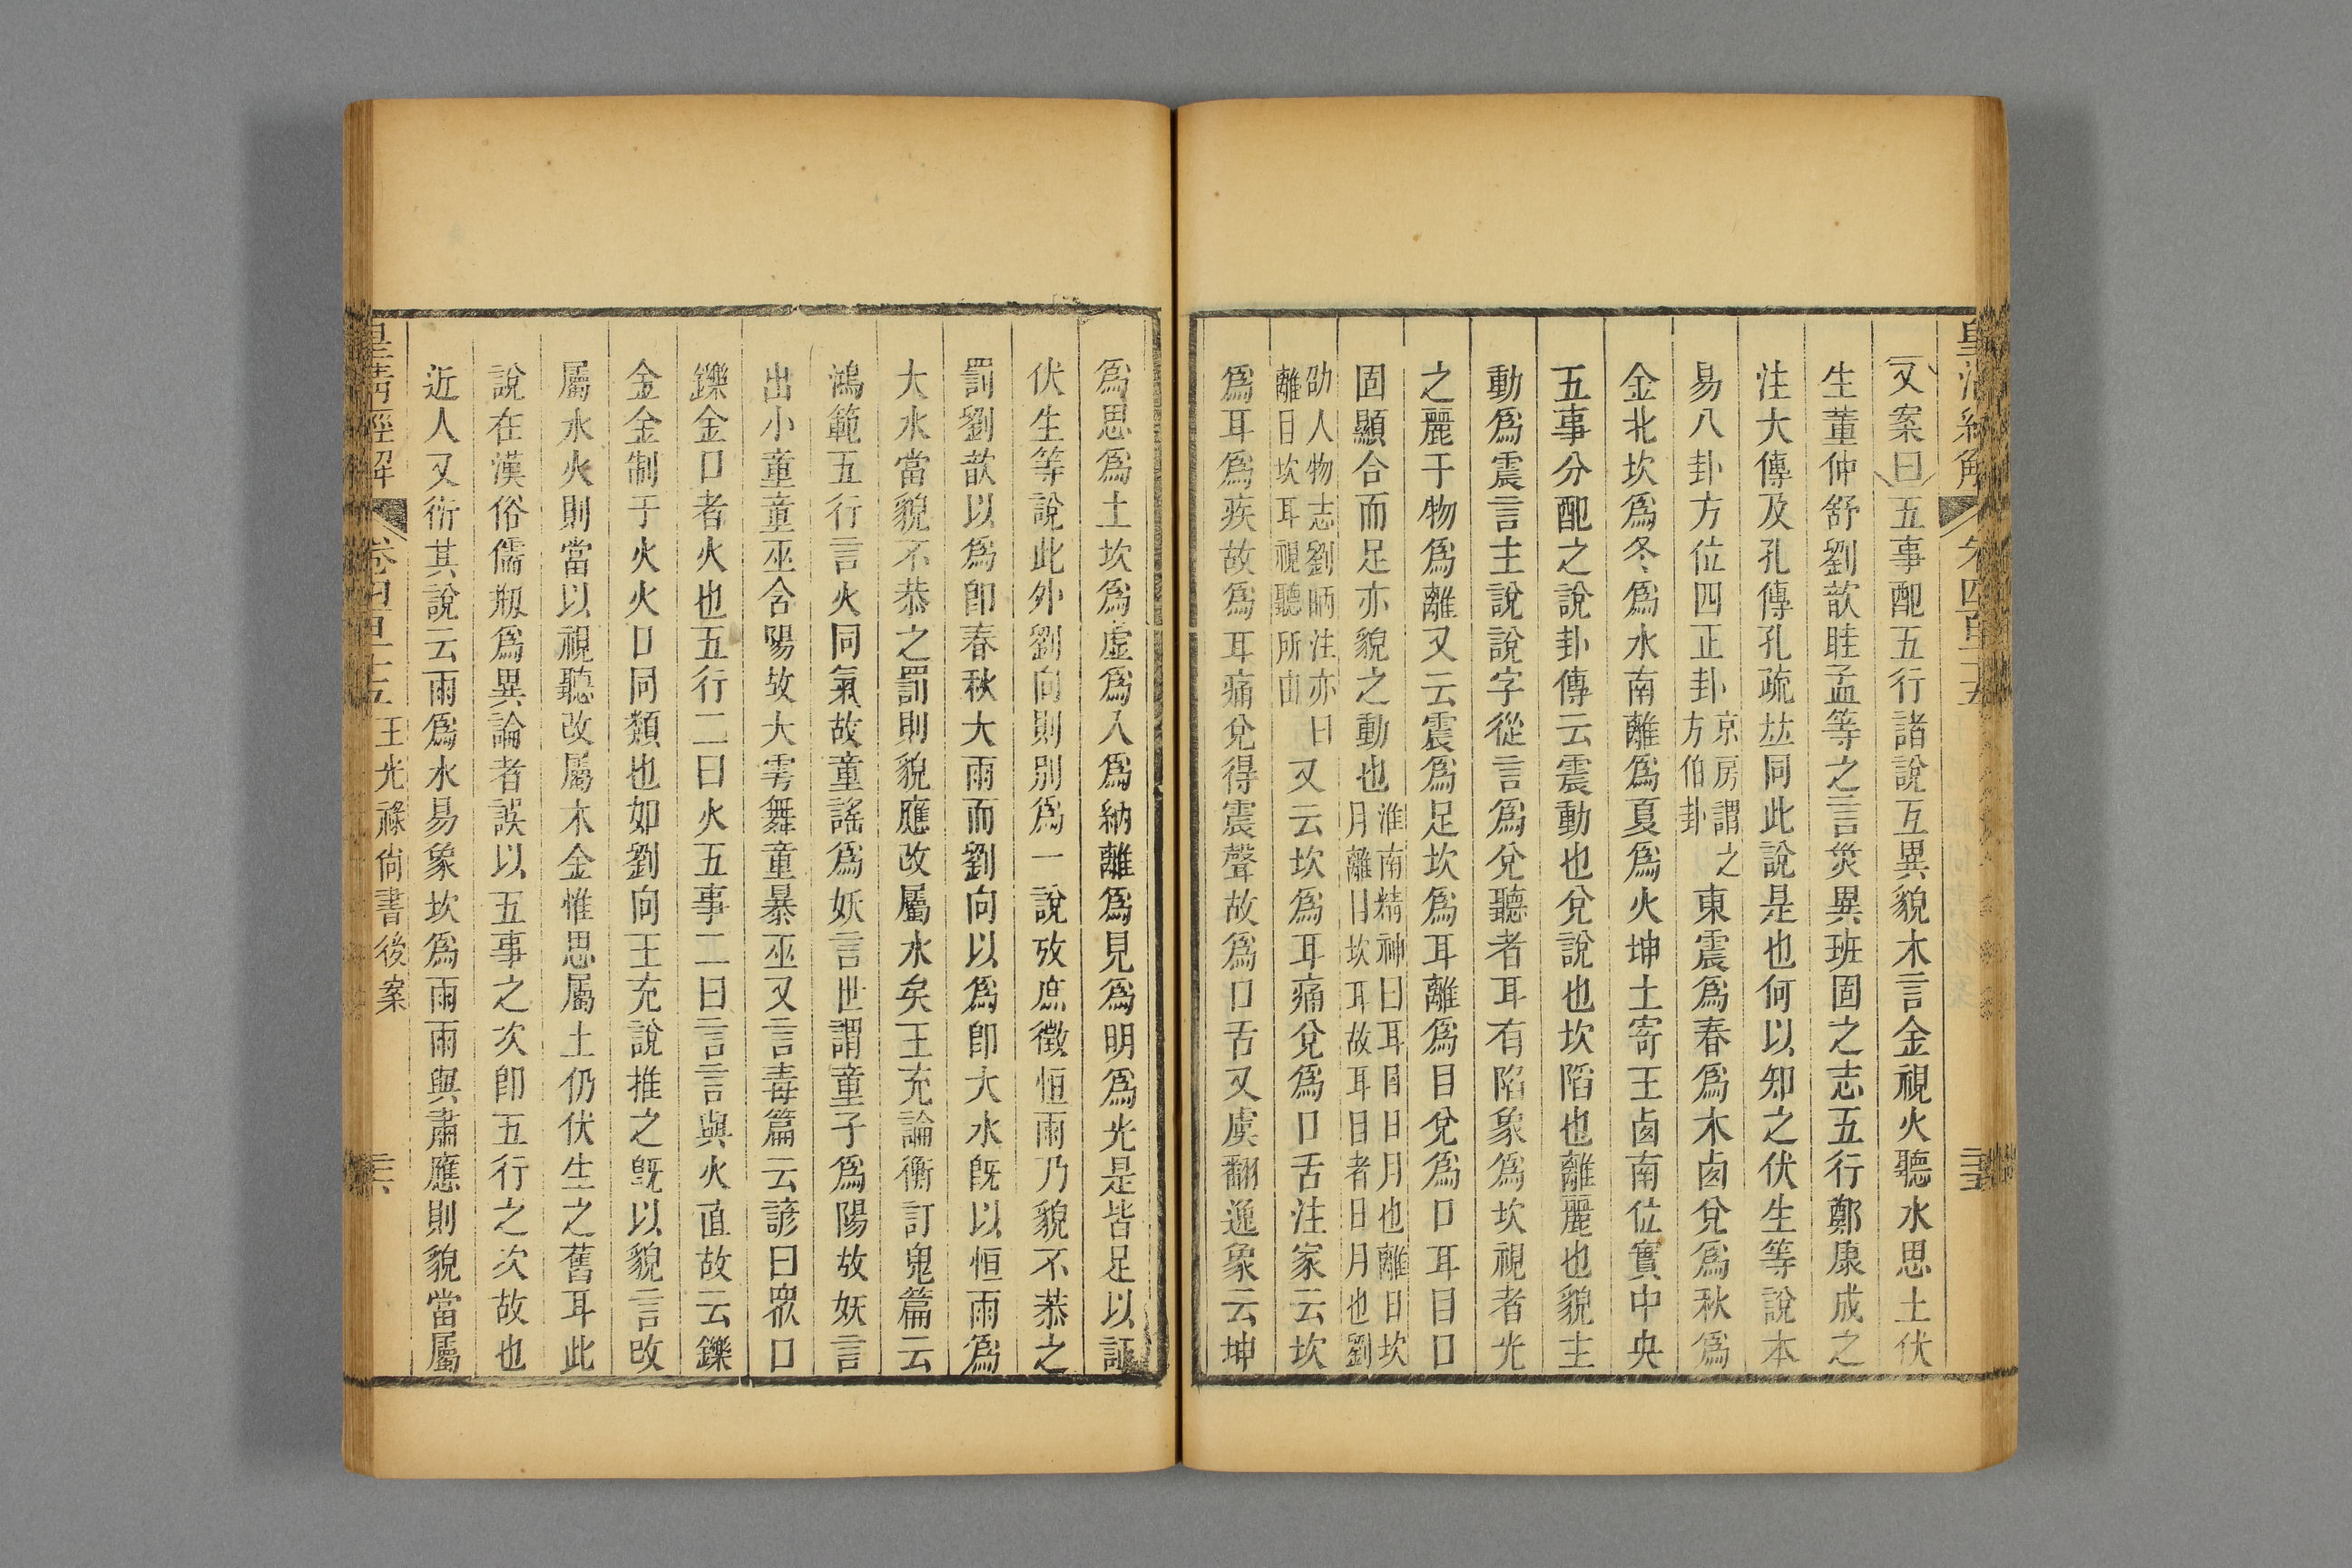 皇清經解 卷四百十五
又案曰五事配五行諸說互異貌木言金視火聽水思土伏
生董仲舒劉歆眭孟等之言災異班固之志五行鄭康成之
注大傳及孔傳孔疏竝同此說是也何以知之伏生等說本
易八卦方位四正卦京房謂之方伯卦東震爲春爲木卤兌爲秋爲
金北坎爲冬爲水南離爲夏爲火坤土寄王卤南位實中央
五事分配之說說卦傳云震動也兌說也坎陷也離麗也貌主
動爲震言主說說字從言爲兌聽者耳有陷象爲坎視者光
之麗于物爲離又云震爲足坎爲耳離爲目兌爲口耳目口
固顯合而足亦貌之動也淮南精神曰耳目日月也離日坎月離目坎耳故耳目者日月也劉
劭人物志劉昞注亦曰離目坎耳視聽所由又云坎爲耳痛兌爲口舌注家云坎
爲耳爲疾故爲耳痛兌得震聲故爲口舌又虞翻逸象云坤
爲思爲土坎爲虛爲入爲納離爲見爲明爲光是皆足以証
伏生等說此外劉向則別爲一說攷庶徵恒雨乃貌不恭之
罰劉歆以爲卽春秋大雨而劉向以爲卽大水旣以恒雨爲
大水當貌不恭之罰則貌應改屬水矣王充論衡訂鬼篇云
鴻範五行言火同氣故童謠爲妖言世謂童子爲陽故妖言
出小童童巫含陽故大雩舞童暴巫又言毒篇云諺曰眾口
鑠金口者火也五行二曰火五事二曰言言與火直故云鑠
金金制于火火口同類也如劉向王充說推之旣以貌言改
屬水火則當以視聽改屬木金惟思屬土仍伏生之舊耳此
說在漢俗儒剏爲異論者誤以五事之次卽五行之次故也
近人又衍其說云雨爲水易象坎爲雨雨與肅應則貌當屬
皇清經解 卷四百十五 王光祿尙書後案 三六